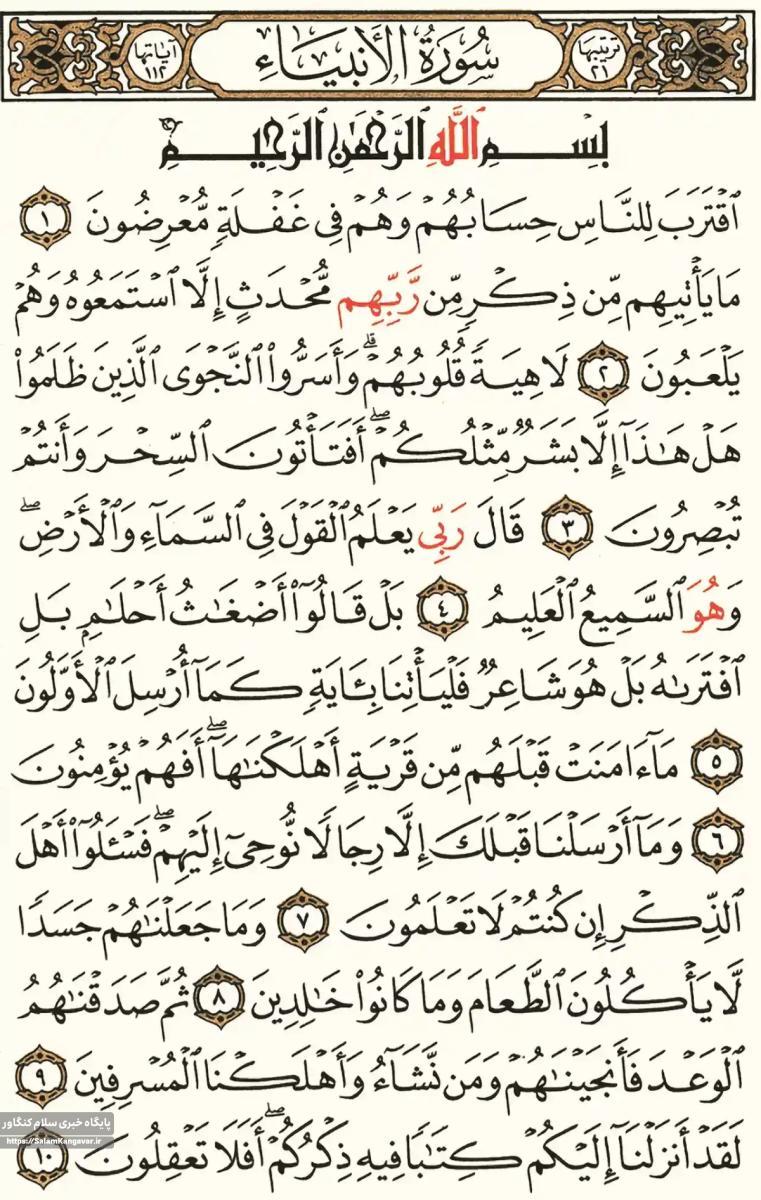 ترتيبها ٢١
سُورَةُ الأَنبِيَاءِ
آياتها ١١٢
بِسْمِ ٱللَّهِ ٱلرَّحْمَٰنِ ٱلرَّحِيمِ
ٱقْتَرَبَ لِلنَّاسِ حِسَابُهُمْ وَهُمْ فِى غَفْلَةٍ مُّعْرِضُونَ ١
مَا يَأْتِيهِم مِّن ذِكْرٍ مِّن رَّبِّهِم مُّحْدَثٍ إِلَّا ٱسْتَمَعُوهُ وَهُمْ
يَلْعَبُونَ ٢ لَاهِيَةً قُلُوبُهُمْ ۗ وَأَسَرُّوا۟ ٱلنَّجْوَى ٱلَّذِينَ ظَلَمُوا۟
هَلْ هَٰذَآ إِلَّا بَشَرٌ مِّثْلُكُمْ ۖ أَفَتَأْتُونَ ٱلسِّحْرَ وَأَنتُمْ
تُبْصِرُونَ ٣ قَالَ رَبِّى يَعْلَمُ ٱلْقَوْلَ فِى ٱلسَّمَآءِ وَٱلْأَرْضِ ۖ
وَهُوَ ٱلسَّمِيعُ ٱلْعَلِيمُ ٤ بَلْ قَالُوٓا۟ أَضْغَٰثُ أَحْلَٰمٍۭ بَلِ
ٱفْتَرَىٰهُ بَلْ هُوَ شَاعِرٌ فَلْيَأْتِنَا بِـَٔايَةٍ كَمَآ أُرْسِلَ ٱلْأَوَّلُونَ
٥ مَآ ءَامَنَتْ قَبْلَهُم مِّن قَرْيَةٍ أَهْلَكْنَٰهَآ ۖ أَفَهُمْ يُؤْمِنُونَ
٦ وَمَآ أَرْسَلْنَا قَبْلَكَ إِلَّا رِجَالًا نُّوحِىٓ إِلَيْهِمْ ۖ فَسْـَٔلُوٓا۟ أَهْلَ
ٱلذِّكْرِ إِن كُنتُمْ لَا تَعْلَمُونَ ٧ وَمَا جَعَلْنَٰهُمْ جَسَدًا
لَّا يَأْكُلُونَ ٱلطَّعَامَ وَمَا كَانُوا۟ خَٰلِدِينَ ٨ ثُمَّ صَدَقْنَٰهُمُ
ٱلْوَعْدَ فَأَنجَيْنَٰهُمْ وَمَن نَّشَآءُ وَأَهْلَكْنَا ٱلْمُسْرِفِينَ ٩
لَقَدْ أَنزَلْنَآ إِلَيْكُمْ كِتَٰبًا فِيهِ ذِكْرُكُمْ ۖ أَفَلَا تَعْقِلُونَ ١٠
پایگاه خبری سلام کنگاور
https://SalamKangavar.ir